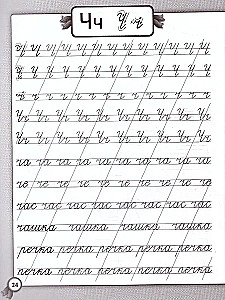 Чч Чч
Ч Ч Ч Ч Ч Ч Ч Ч Ч Ч Ч Ч
Ч Ч Ч Ч Ч Ч Ч Ч Ч Ч Ч Ч
ч ч ч ч ч ч ч ч ч ч ч ч
Чч Чч Чч Чч Чч Чч Чч Чч Чч
Чч Чч Чч Чч Чч Чч Чч Чч Чч
ча ча ча ча ча ча ча ча ча
че че че че че че че че че
час час час час час час час
чашка чашка чашка чашка
речка речка речка речка речка
речка речка речка речка речка
24